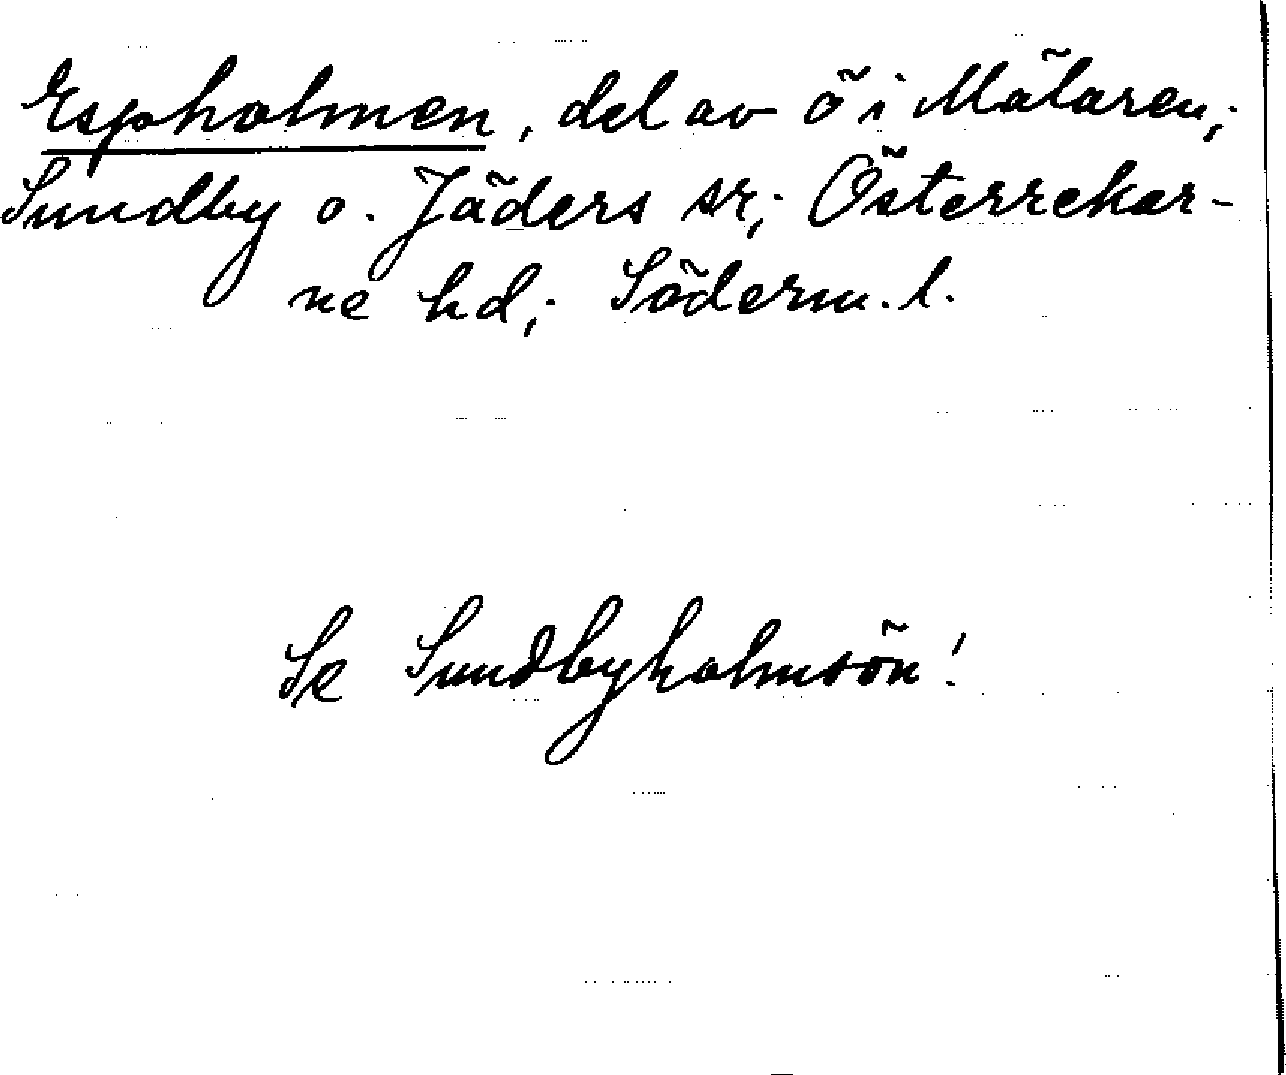 Espholmen, del av ö i Mälaren;
Sundby o. Jäders sr; Österrekar-
ne hd; Söderm. l.
Se Sundbyholmsön!